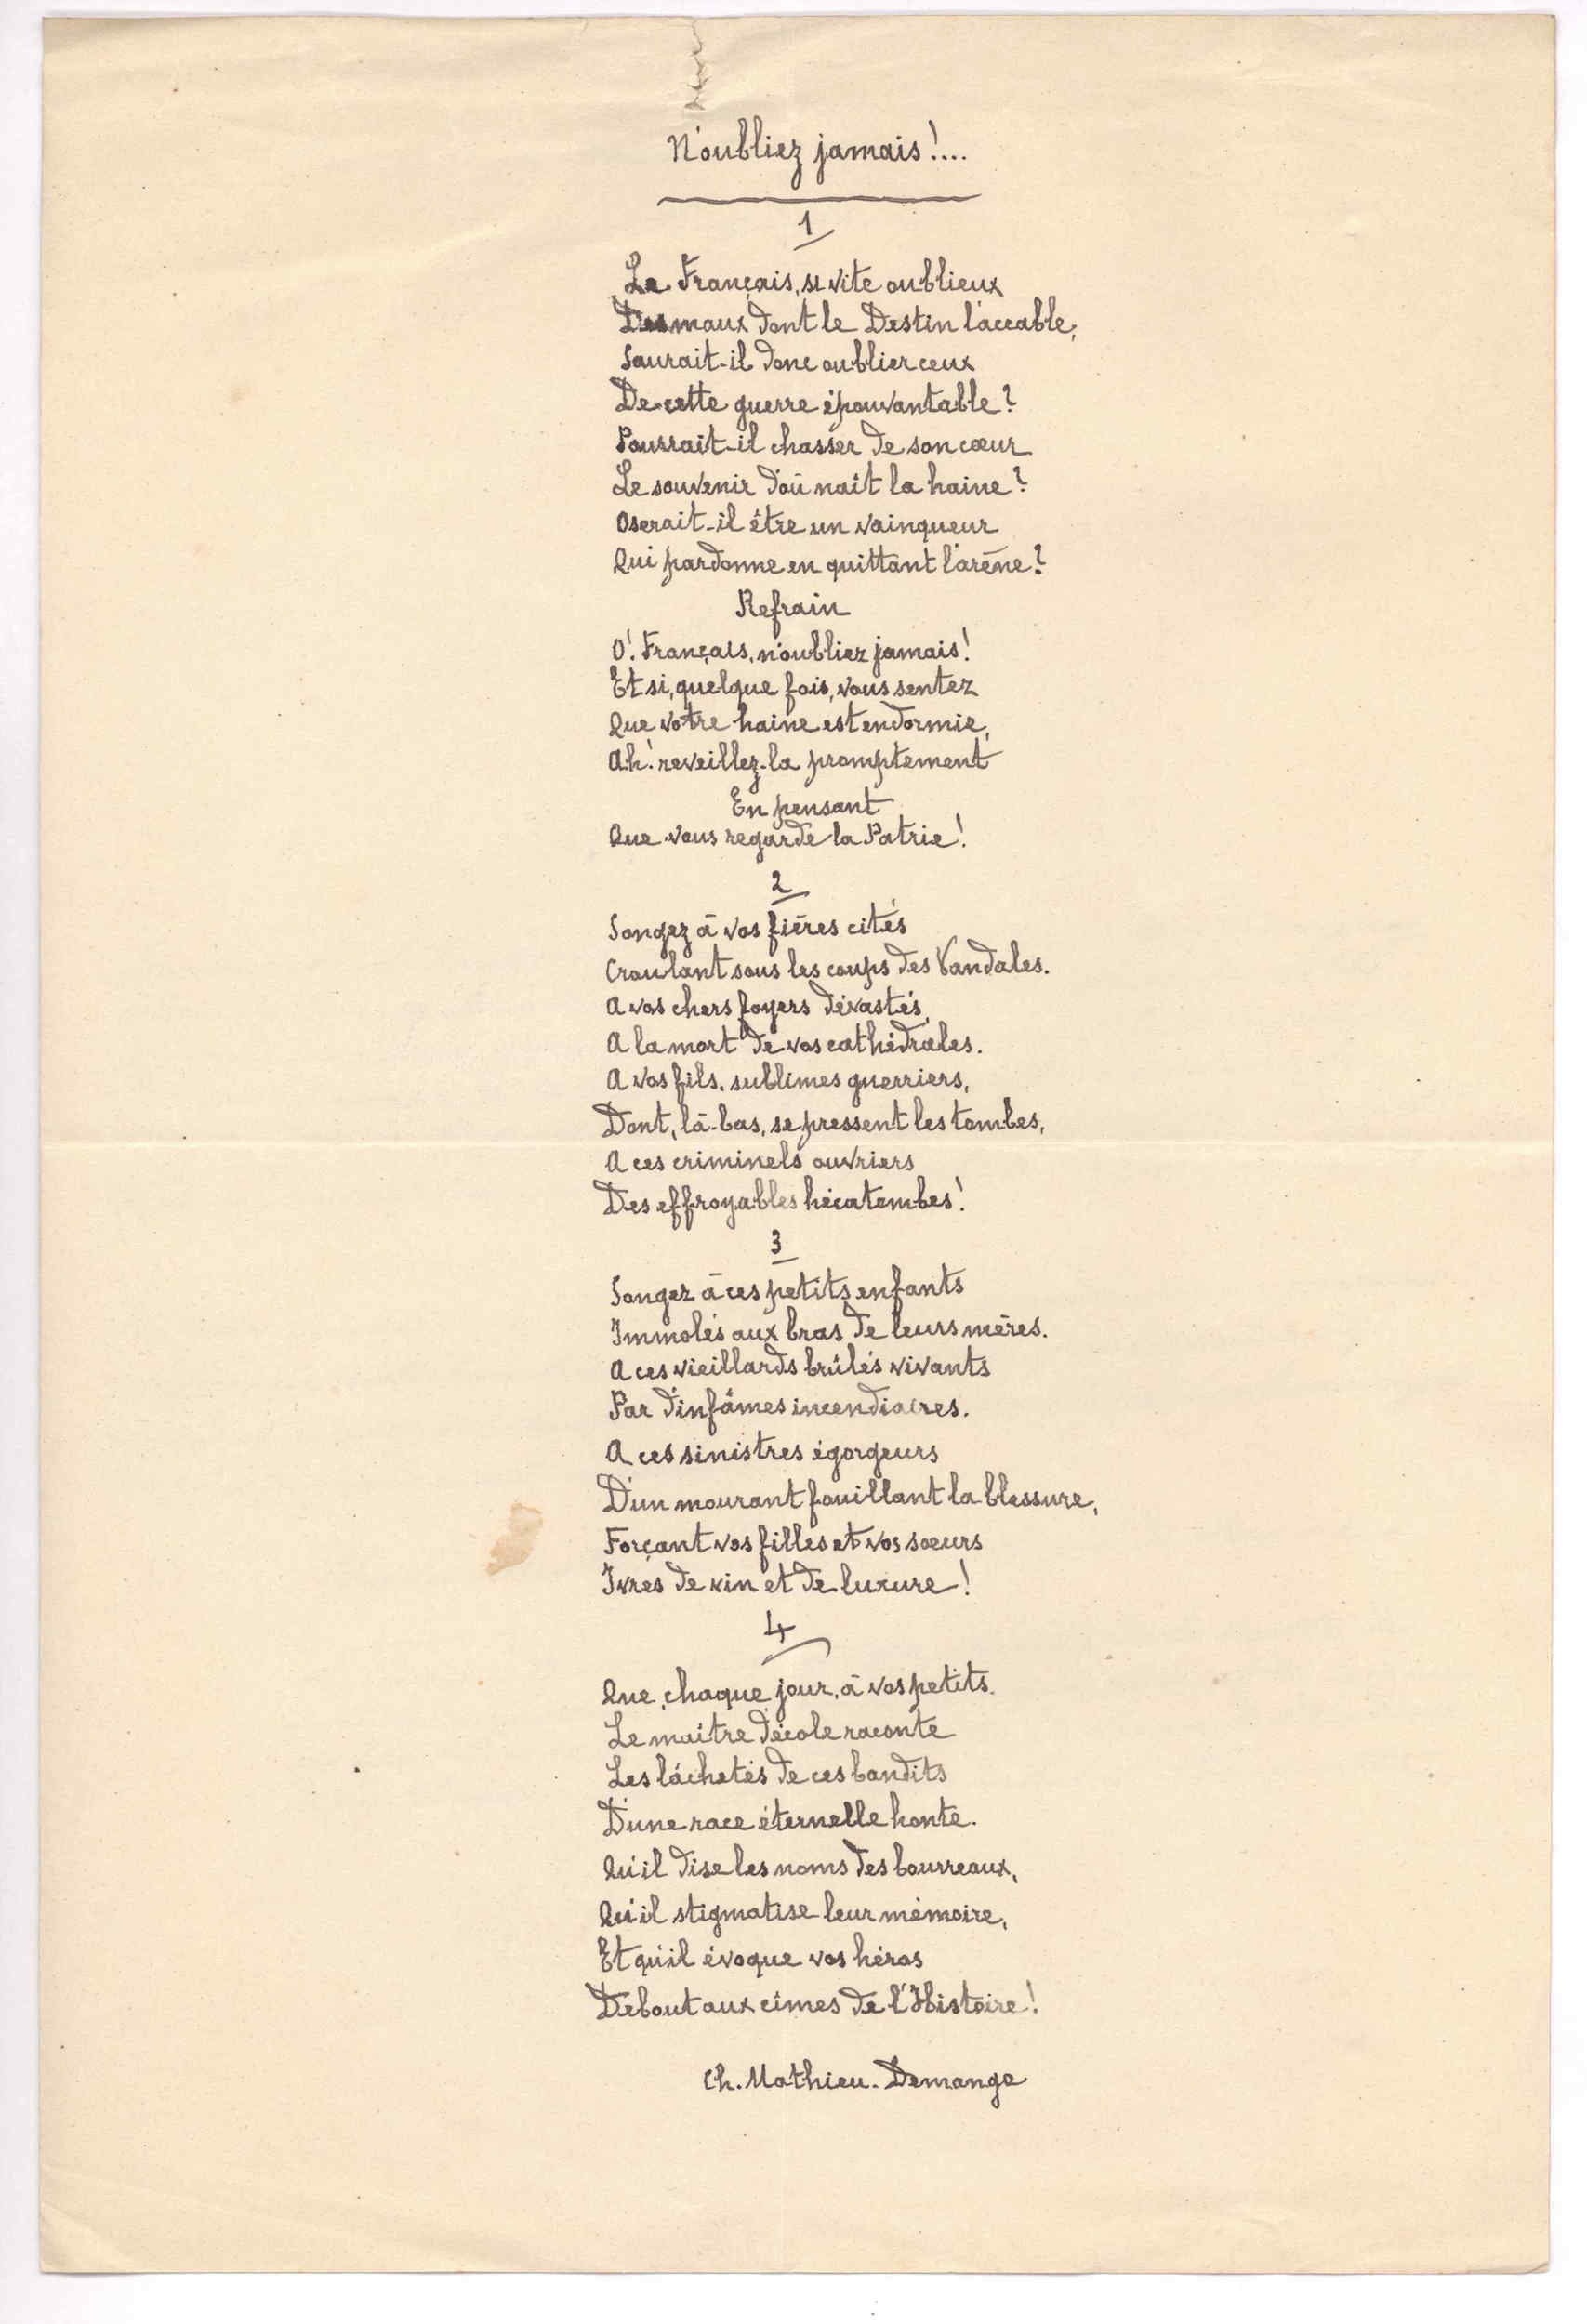 N'oubliez jamais!....
1
Le Français, si vite oublieux
Des maux dont le Destin l'accable,
Saurait-il donc oublier ceux
De cette guerre épouvantable?
Pourrait-il chasser de son cœur
Le souvenir d'où naît la haine?
Oserait-il être un vainqueur
Qui pardonne en quittant l'arène?
Refrain
O! Français, n'oubliez jamais!
Et si, quelque fois, vous sentez
Que votre haine est endormie,
Ah! reveillez-la promptement
En pensant
Que vous regarde la Patrie!
2
Songez à vos fières cités
Croulant sous les coups des Vandales.
A vos chers foyers dévastés,
A la mort de vos cathédrales.
A vos fils, sublimes guerriers,
Dont, là-bas, se pressent les tombes,
A ces criminels ouvriers
Des effroyables hécatombes!
3
Songez à ces petits enfants
Immolés aux bras de leurs mères.
A ces vieillards brûlés vivants
Par d'infâmes incendiaires.
A ces sinistres égorgeurs
D'un mourant fouillant la blessure,
Forçant vos filles et vos sœurs
Ivres de vin et de luxure!
4
Que, chaque jour, à vos petits.
Le maître d'école raconte
Les lâchetés de ces bandits
D'une race éternelle honte.
Qu'il dise les noms des bourreaux,
Qu'il stigmatise leur mémoire,
Et qu'il évoque vos héros
Debout aux cîmes de l'Histoire!
Ch. Mathieu. Demange